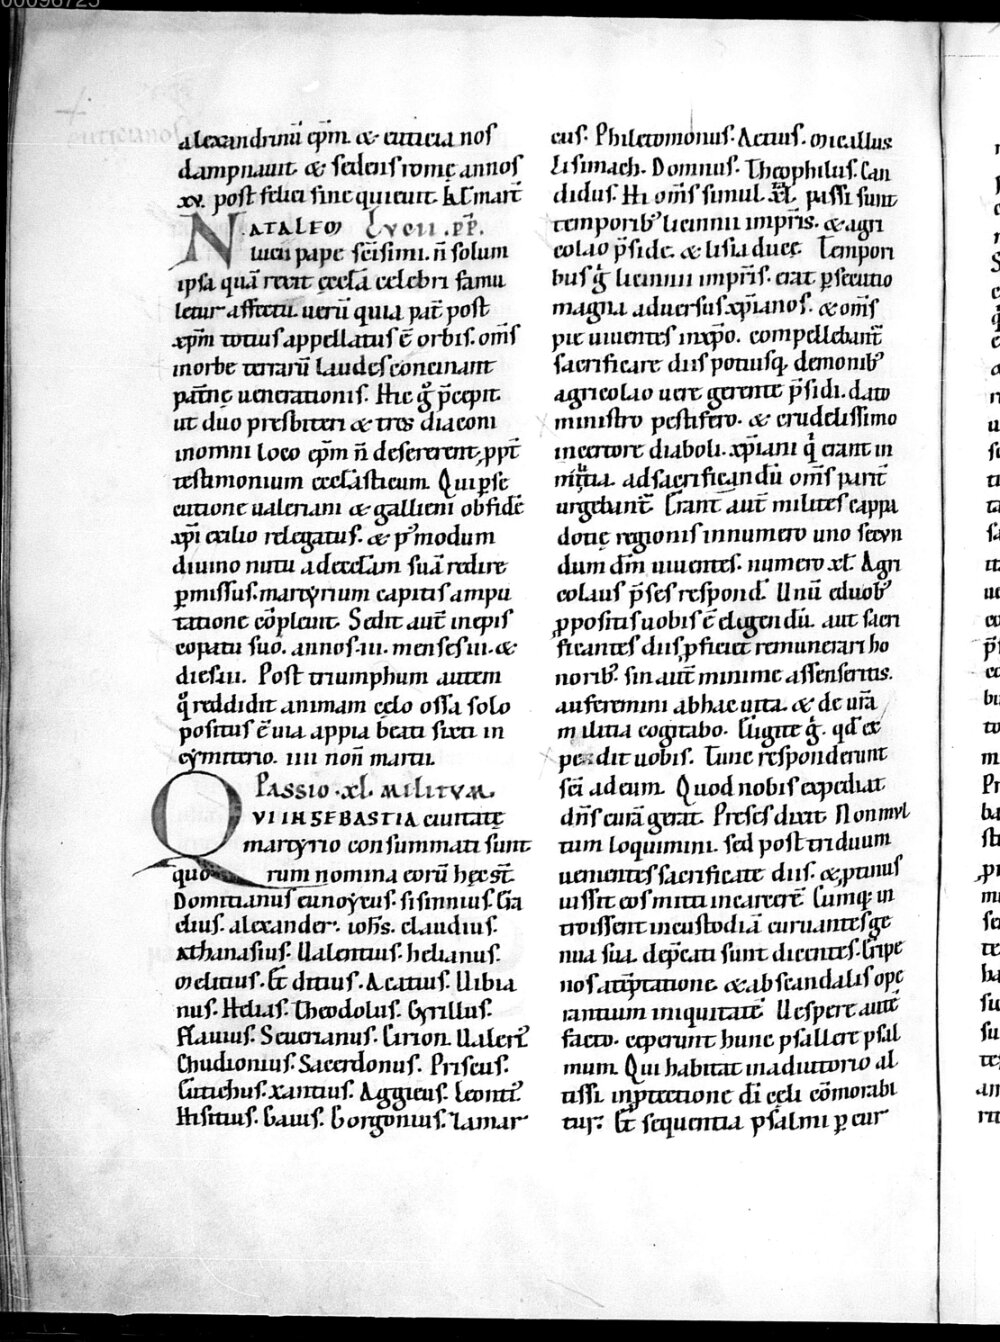 00096725
alexandrinū ep̄m. & euticianos
dampnauit & sedens romę annos
xv. post felici fine quieuit. kł mart̄
NATALE SC̄I LVCII .PP.
Lucii pape sc̄issimi. n̄ solum
ipsa quā rexit ęcclā celebri famu
letur affectu. uerū quia pat̄ post
xp̄m totius appellatus ē orbis. om̄s
in orbe terrarū laudes concinant
pat̄nę uenerationis. Hic g̊ p̄cepit.
ut duo presbiteri & tres diaconi
in omni loco ep̄m n̄ desererent, ꝓpt̄
testimonium eccłasticum. Qui ꝑse
cutione ualeriani & gallieni ob fidē
xp̄i exilio relegatus. & p̄modum
diuino nutu ad eccłam suā redire
ꝑmissus. martyrium capitis ampu
tatione cōpleuit. Sedit aut̄ in epis
copatu suo. annos .iii. menses .iii. &
dies .iii. Post triumphum autem
q̊ reddidit animam cęlo ossa solo
positus ē uia appia beati sixti in
cymiterio. iiii non̄ martii.
PASSIO .XL. MILITVM.
QVI IN SEBASTIA ciuitatę
martyrio consummati sunt
quorum nomina eorū hęc st̄.
Domitianus eunoycus. sisinnius. Ga
dius. alexander. ioh̄s. claudius.
Athanasius. Ualentius. helianus.
Melitius. Ecditius. Acatius. Uibia
nus. Helias. Theodolus. Cyrillus.
Flauius. Seuerianus. Cirion. Ualeri᷒
Chudionius. Sacerdonus. Priscus.
Eutichus. xantius. Aggieus. Leonti᷒
Hisitius. Gaius. Gorgonius. Lamar
cus. Philetomonus. Actius. Micallus
Lisimach. Domnus. Theophilus. Can
didus. Hi om̄s simul .xl. passi sunt
temporib᷒ licinnii imp̄ris. & agri
colao p̄side. & lisia ducę. Tempori
bus g̊ licinnii imp̄ris. erat ꝑsecutio
magna aduersus xp̄ianos. & om̄s
pie uiuentes in xp̄o. compellebant̄
sacrificare diis potiusq; demonib᷒
agricolao uere gerente p̄sidi. dato
ministro pestifero. & crudelissimo
incertore diaboli. xp̄iani q̊ erant in
militia ad sacrificandū om̄s parit̄
urgebant̄. Erant aut̄ milites cappa
docię regionis in numero uno secun
dum dm̄ uiuentes. numero .xł. Agri
colaus p̄ses respond̄. Unū e duob᷒
ꝓpositis uobis ē eligendū. aut sacri
ficantes diis ꝓficiet remunerari ho
norib᷒. sin aut̄ minime assenseritis.
auferemini ab hac uita. & de ur̄a
militia cogitabo. Eligite g̊. qd̄ ex
pedit uobis. Tunc responderunt
sc̄i ad eum. Quod nobis expediat
dn̄s curā gerat. Preses dixit. Non mul
tum loquimini. sed post triduum
uenientes sacrificate diis. & ꝓtinus
iussit eos mitti in carcerē. Cumq; in
troissent in custodiā curuantes ge
nua sua. dep̄cati sunt dicentes. Eripe
nos a tēptatione. & ab scandalis ope
rantium iniquitatē. Uespere autē
facto. ceperunt hunc psallere psal
mum. Qui habitat in adiutorio al
tissi in ꝓtectione di cęli cōmorabi
tur. Et sequentia psalmi ꝑ cur